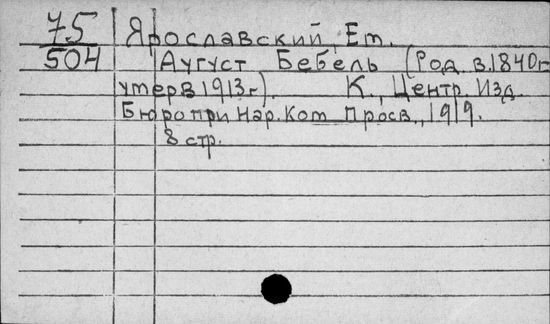 75 Ярославский Ем.
504 Аугуст Бебель (Род. в. 1840г.
умер в 1913 г.) К., Центр. Изд.
Бюро при Нар. Ком Просв., 1919.
8 стр.